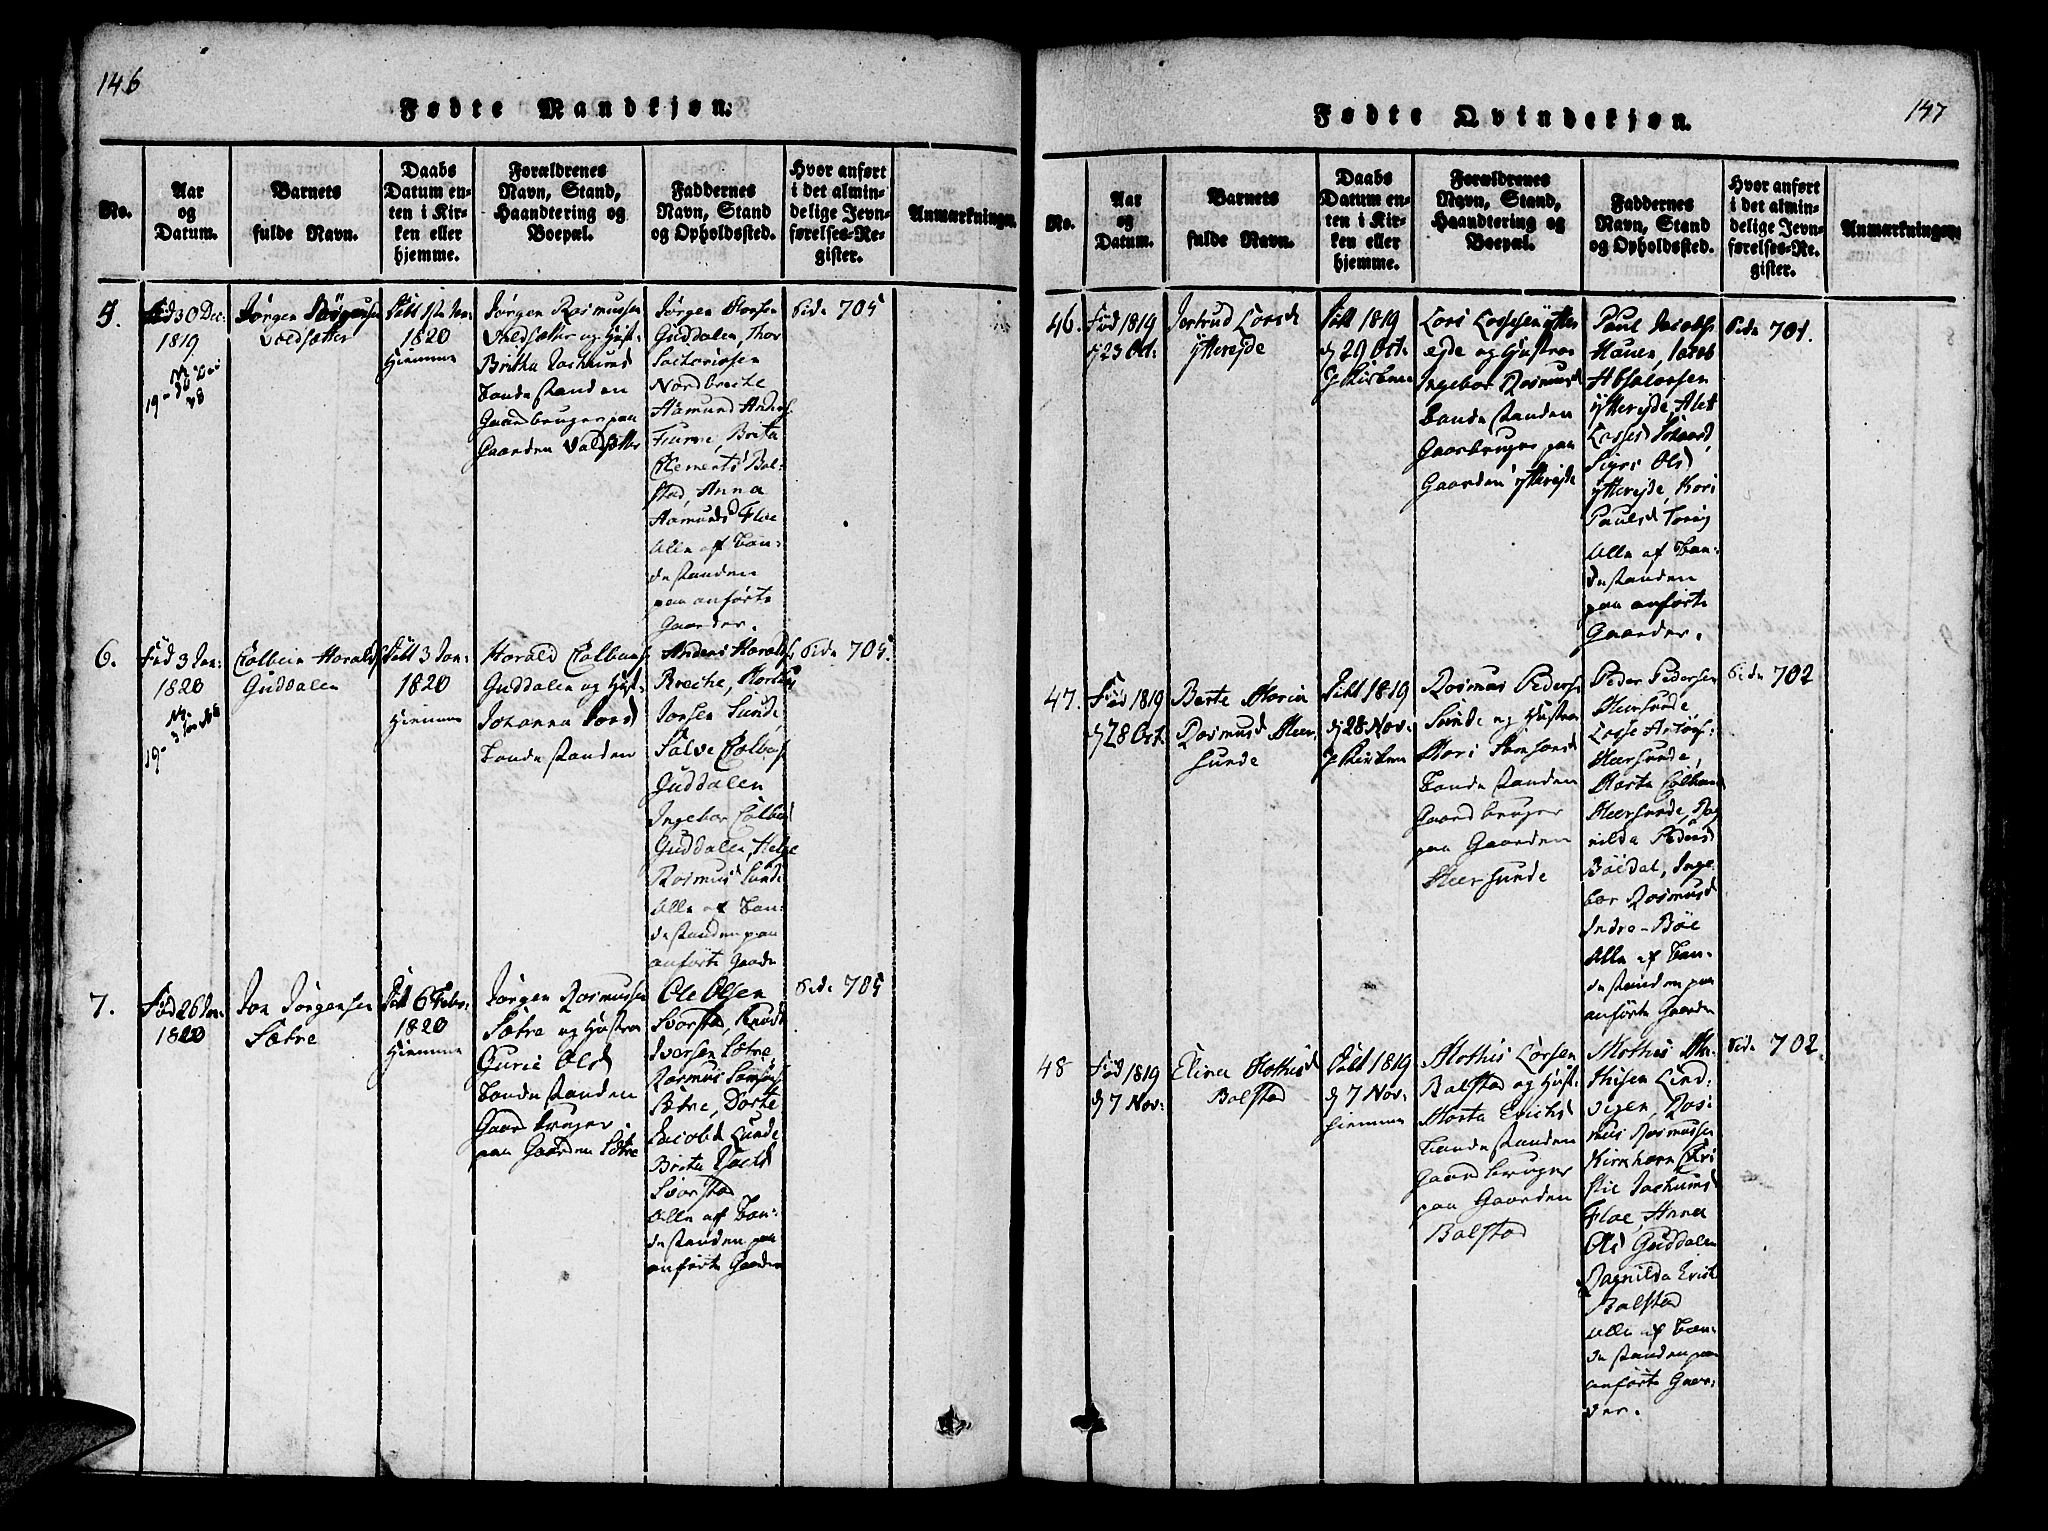 146
Fødte Mandkjøn.
No.
Aar
og
Datum.
Barnets
fulde Navn.
Daabs
Datum en-
ten i Kir-
ken eller
hjemme.
Forældrenes
Navn, Stand,
Haandtering og
Boepæl.
Faddernes
Navn, Stand
og Opholdssted.
Hvor anført
i det almin-
delige Jevn-
førelses-Re-
gister.
Anmærkninger.
5.
Fød 30 Dec:
1819
Jørgen Jørgensen
Valdsætter
1820
Hiemme
Jørgen Rasmussen
Valdsætter og Hust:
Britha Jachums
Bondestanden
Gaardbruger paa
Gaarden Valdsætter
Jørgen
Guddalen, Thor
Sachariasen
Nordbreche
Aamund Anders
Furre, Brita
Clements Bol-
stad, Anna
Aamunds Floe
Alle af Bon-
destanden
paa anførte
Gaarder.
Side 705
6.
Fød 3 Jan:
1820
Colbein Haralds
Guddalen
Døbt 3 Jan:
1820
Hiemme
Harald Colbens
Guddalen og Hust:
Johanna Jons
Bondestanden
Anders Haralds
Breche, Morten
Jonsen Sunde
Salve Colbens
Guddalen
Ingebor Colbens
Guddalen, Helge
Rasmusd Sunde
Alle af Bon-
destanden paa
anførte Gaarde
Side 705
7.
Fød 26 Jan:
1820
Jon Jørgensen
Sætre
Døbt 6 Febr:
1820
Hiemme
Jørgen Rasmussen
Sætre og Hustroe
Gurie Olsd
Bondestanden
Gaardbruger
paa Gaarden Sætre
Ole Olsen
Svorstad, Knud
Iversen Sætre,
Rasmus Samsons
Sætre, Dorte
Jacobsd Sunde
Brita
Svorstad
Alle af Bon-
destanden paa
anførte Gaarder
Side 705
147
Fødte Qvindekjøn.
No.
Aar
og
Datum.
Barnets
fulde Navn.
Daabs
Datum en-
ten i Kir-
ken eller
hjemme.
Forældrenes
Navn, Stand,
Haandtering og
Boepæl.
Faddernes
Navn, Stand
og Opholdssted.
Hvor anført
i det almin-
delige Jevn-
førelses-Re-
gister.
Anmærkninger.
46.
Fød 1819
d 23 Oct:
Jertrud Larsd
Ytterejde
Døbt 1819
d 29 Oct:
J Kirken
Lars Lassesen Ytter
ejde og Hustroe
Ingebor Rasmusd
Bondestanden
Gaarbruger paa
Gaarden Ytterejde
Paul Jacobs
Hauen, Jacob
Absalonsen
Ytterejde, Alet
Lassesd
Sigri Olsd
Ytterejde, Kari
Paulsd
Alle af Bon-
destanden
paa anførte
Gaarder.
Side 701.
47.
Fød 1819
d 28 Oct.
Berte Maria
Rasmusd Meer-
sunde
Døbt 1819
d 28 Nov:
J Kirken
Rasmus Peders
Sunde og Hustroe
Mari Samsonsd
Bondestanden
Gaardbruger
paa Gaarden
Meersunde
Peder Pedersen
Meersunde
Lasse Antons:
Meersunde,
Marta Colbens
Meersunde, Rag
nilda Pedersd
Böedal, Inge-
bor Rasmusd
Indre-Böe
Alle af Bon-
destanden paa
anførte Gaarder
Side 702
48
Fød 1819
d 7 Nov:
Elina Mathisd
Bolstad
Døbt 1819
d 7 Nov:
Hiemme
Mathis Larsen
Bolstad og Hust:
Marta Erichsd
Bondestanden
Gaardbruger
paa Gaarden
Bolstad
Mathis Ma-
thisen Lind-
vigen, Ras-
mus Rasmussen
Kirkhorn
Jachumsd
Floe, Anna
Olsd Guddalen
Ragnilda Erichs
Bolstad
Alle af Bon-
destanden paa
anførte Gaar-
der.
Side 702.